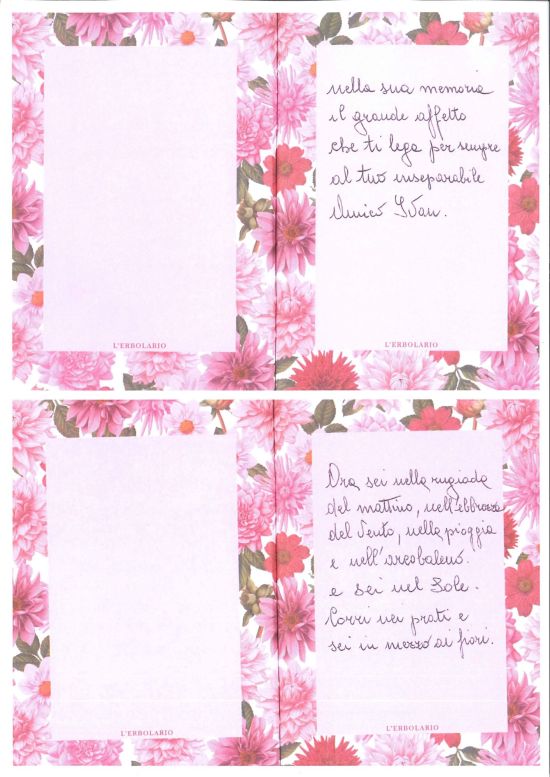 nella sua memoria
il grande affetto
che ti lega per sempre
al tuo inseparabile
Amico Ivan.
L'ERBOLARIO
L'ERBOLARIO
Ora sei nella rugiada
del mattino, nell'ebbrezza
del Vento, nella pioggia
e nell'arcobaleno.
e sei nel Sole.
Corri nei prati e
sei in mezzo ai fiori.
L'ERBOLARIO
L'ERBOLARIO